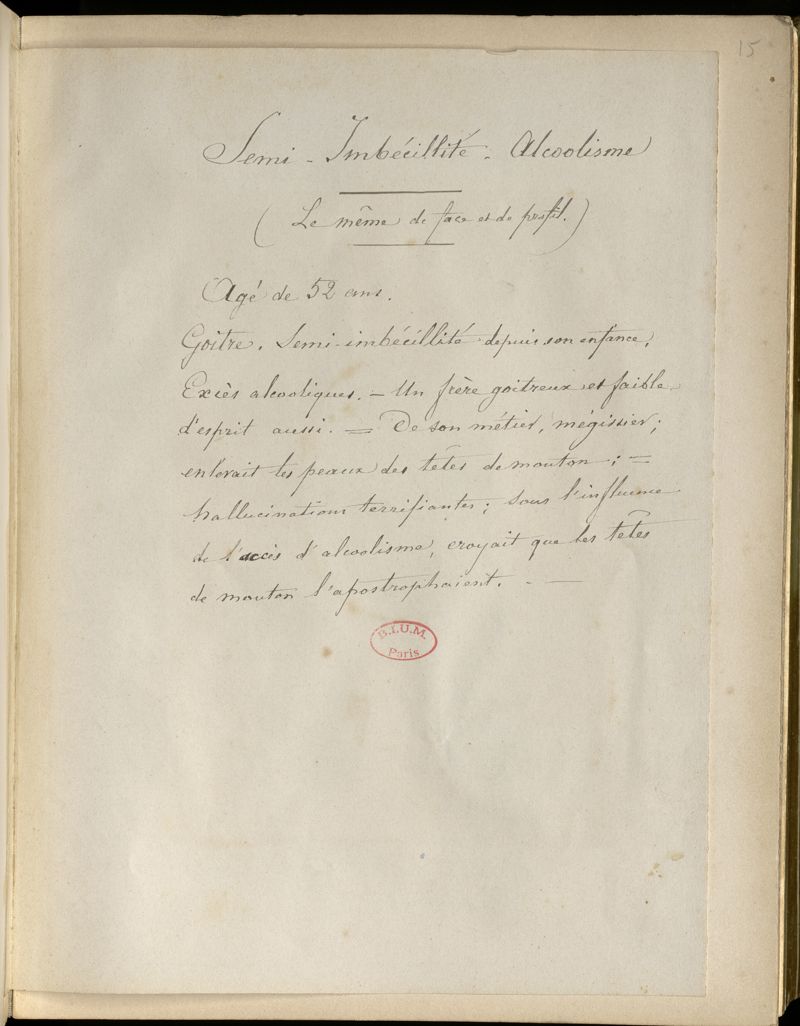 15
Semi-Imbécillité. Alcoolisme
(Le même de face et de profil.)
Agé de 52 ans.
Goître. Semi-imbécillité depuis son enfance.
Excès alcooliques. — Un frère goitreux et faible
d'esprit aussi. = De son métier, mégissier;
enlevait les peaux des têtes de mouton; =
hallucinations terrifiantes; sous l'influence
de l'accès d'alcoolisme, croyait que les têtes
de mouton l'apostrophaient. - —
B.I.U.M.
Paris